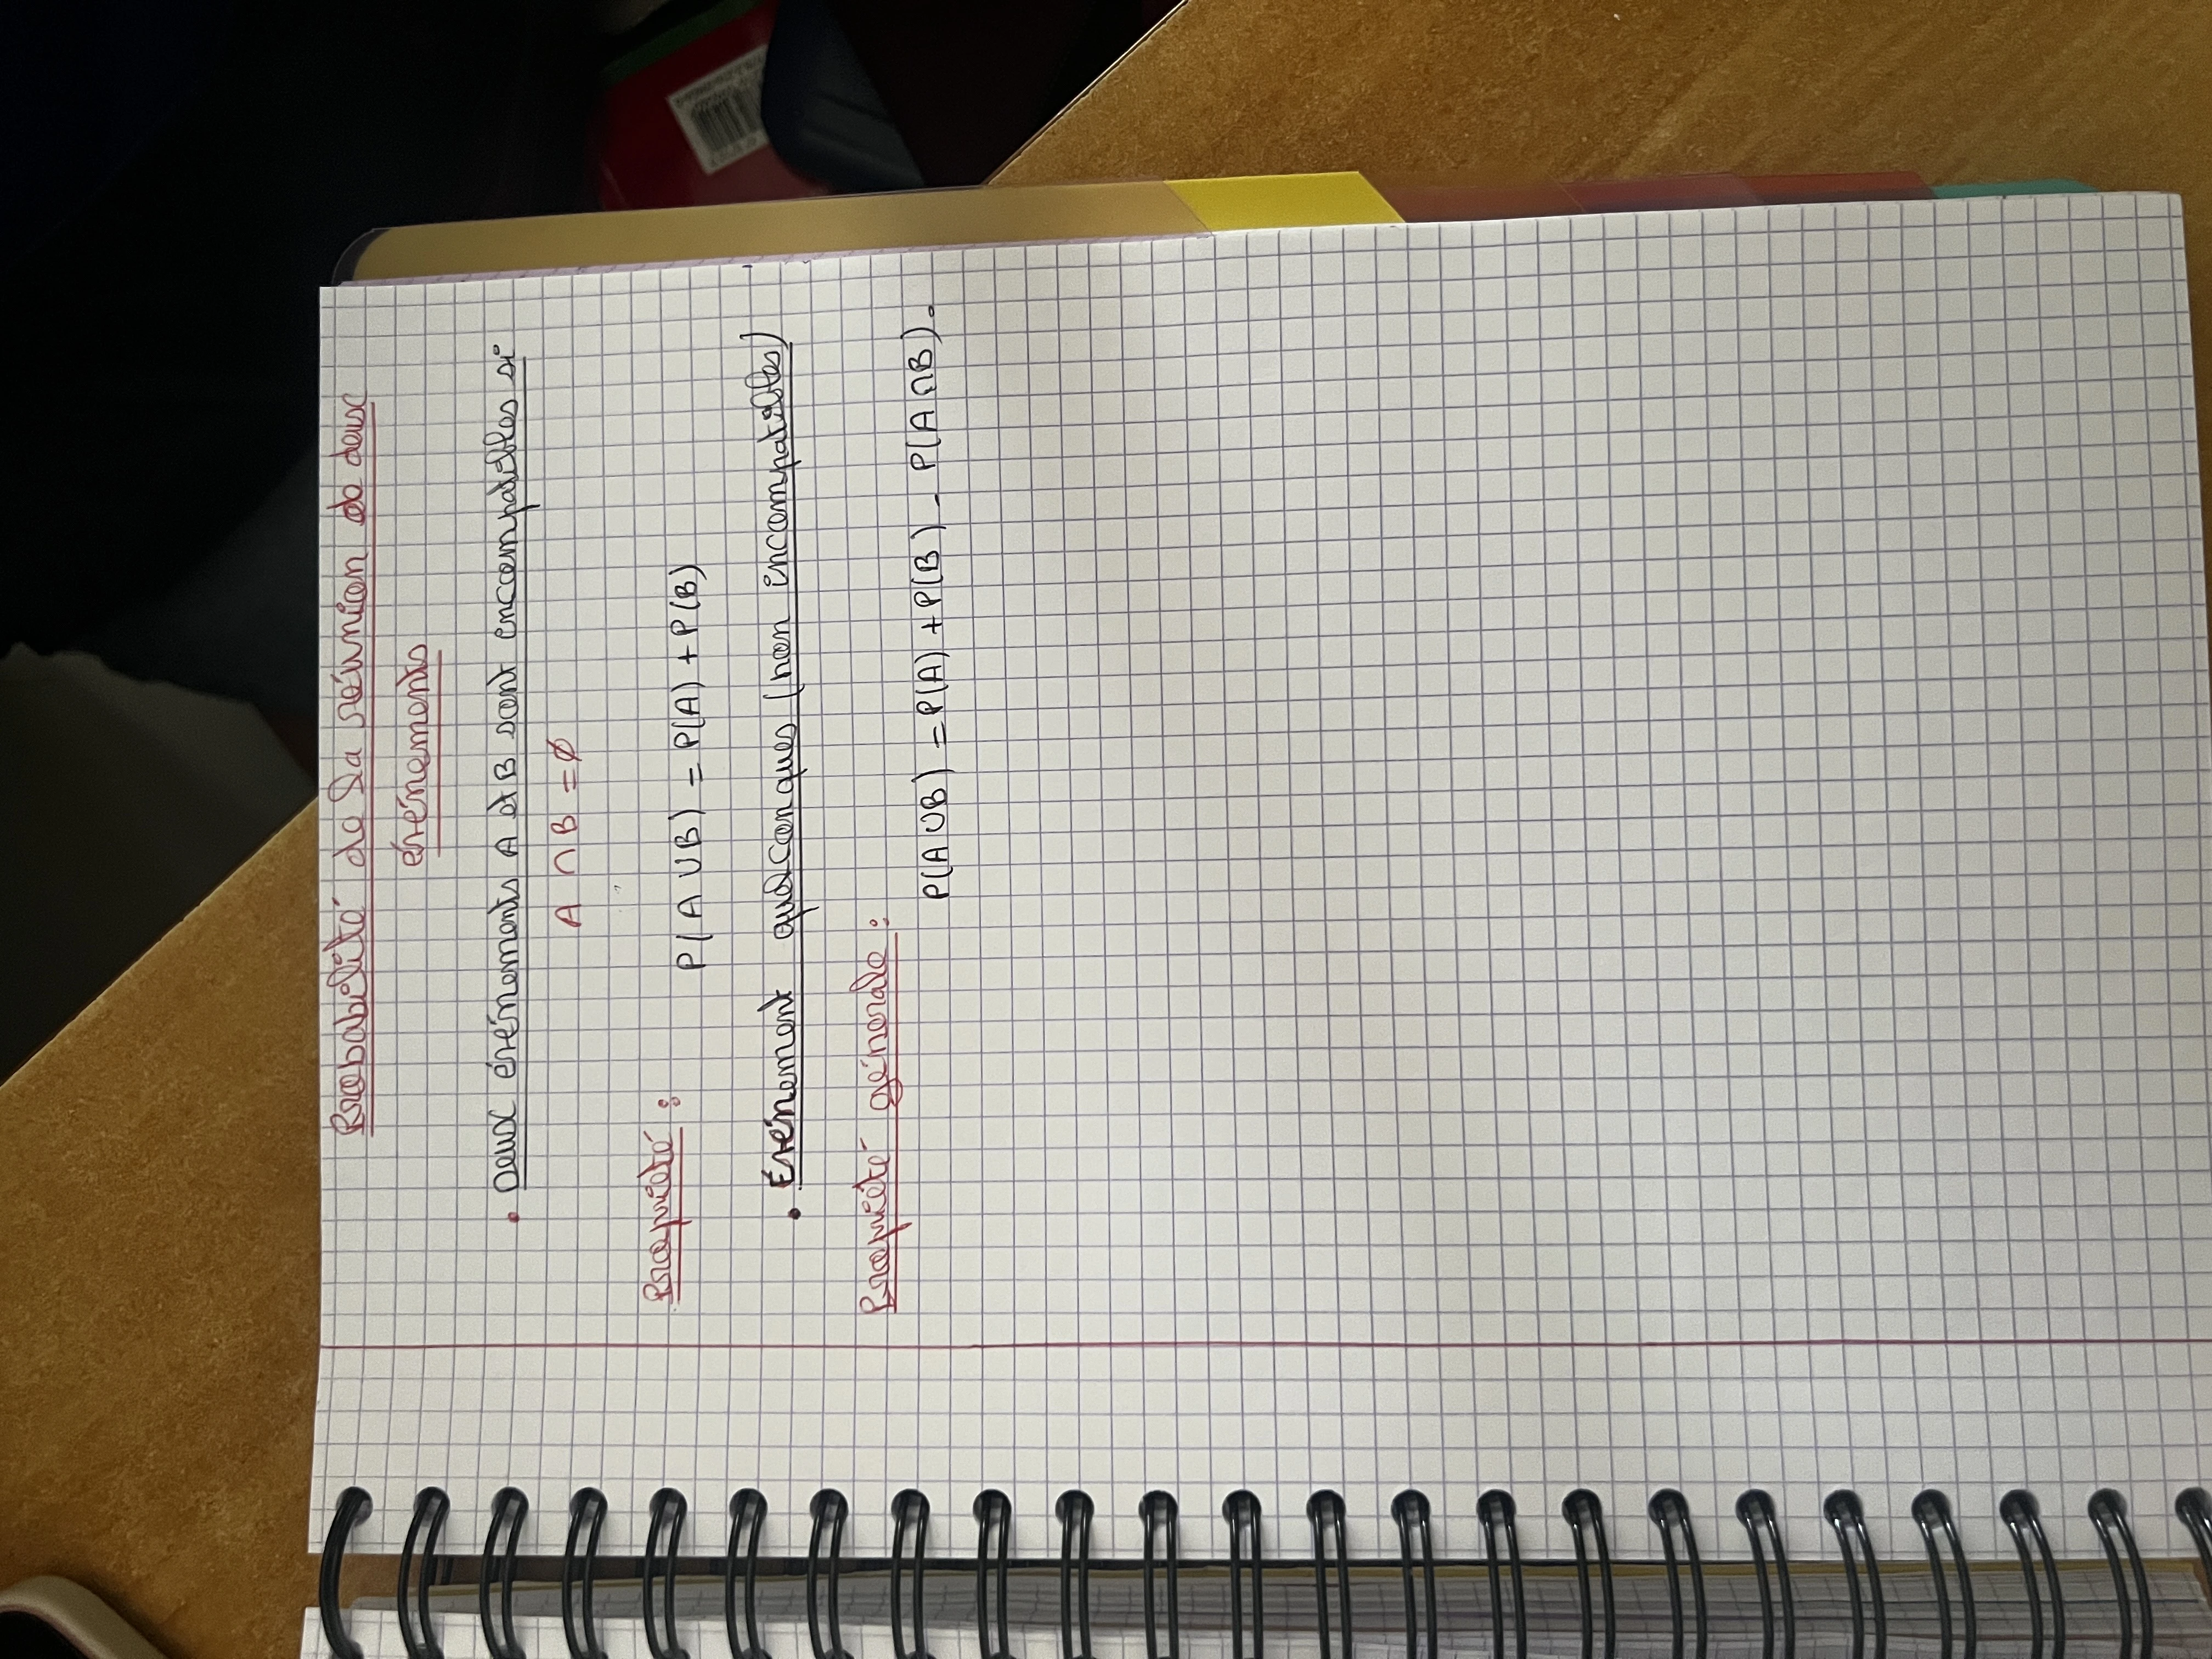 Probabilité de la réunion de deux
événements
• Deux événements A et B sont encompatibles si
A ∩ B = ∅
Propriété :
P(A ∪ B) = P(A) + P(B)
• Événement quelconques (non incompatibles)
Propriété génerale :
P(A ∪ B) = P(A) + P(B) - P(A ∩ B).